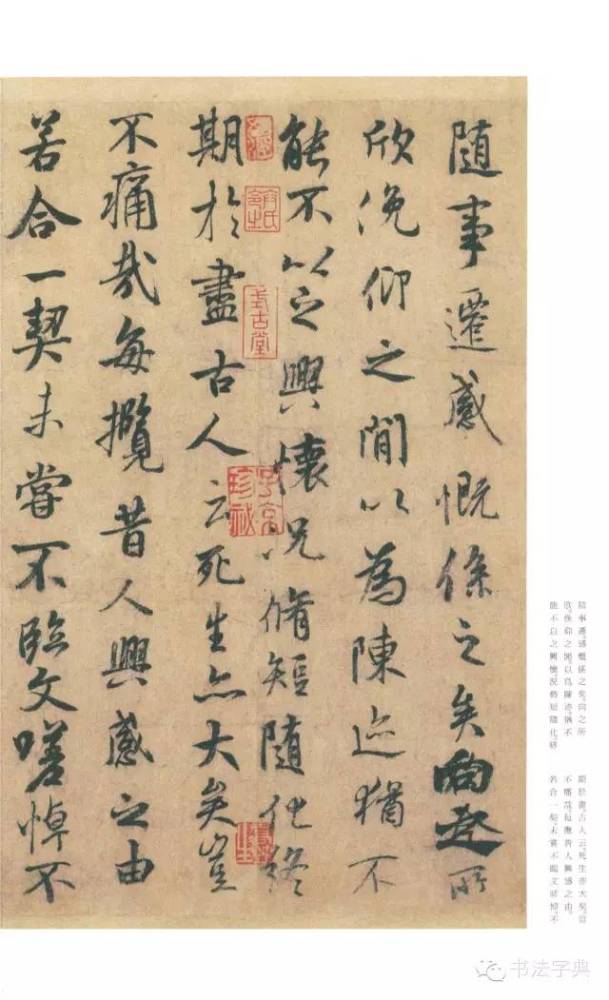 隨事遷感慨係之矣向之所
欣俛仰之間以為陳迹猶不
能不以之興懷況脩短隨化終
期於盡古人云死生亦大矣豈
不痛哉每攬昔人興感之由
若合一契未嘗不臨文嗟悼不
式古堂
子京珍秘
隨事遷，感慨係之矣。向之所
欣，俛仰之間，以爲陳迹，猶不
能不以之興懷。況脩短隨化，終
期於盡。古人云，死生亦大矣。豈
不痛哉。每攬昔人興感之由，
若合一契，未嘗不臨文嗟悼，不
书法字典